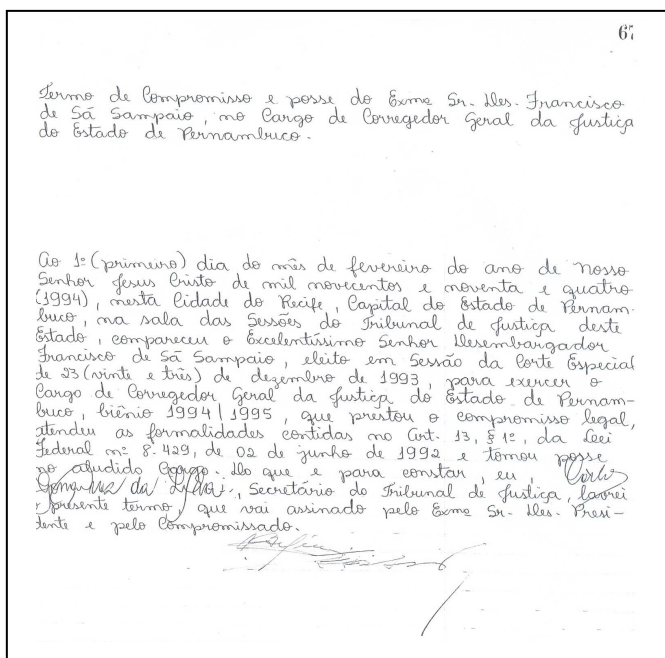 67
Termo de Compromisso e posse do Exmo Sr. Des. Francisco
de Sá Sampaio, no Cargo de Corregedor Geral da Justiça
do Estado de Pernambuco.
Ao 1º (primeiro) dia do mês de fevereiro do ano de Nosso
Senhor Jesus Cristo de mil novecentos e noventa e quatro
(1994), nesta Cidade do Recife, Capital do Estado de Pernam-
buco, na sala das Sessões do Tribunal de Justiça deste
Estado, compareceu o Excelentíssimo Senhor Desembargador
Francisco de Sá Sampaio, eleito em Sessão da Corte Especial
de 23 (vinte e três) de dezembro de 1993, para exercer o
Cargo de Corregedor Geral da Justiça do Estado de Pernam-
buco, biênio 1994/1995, que prestou o compromisso legal,
atendeu as formalidades contidas no Art. 13, § 1º, da Lei
Federal nº 8.429, de 02 de junho de 1992 e tomou posse
no aludido Cargo. Do que e para constar, eu
da Silva, Secretário do Tribunal de Justiça, lavrei
o presente termo, que vai assinado pelo Exmo Sr. Des. Presi-
dente e pelo Compromissado.